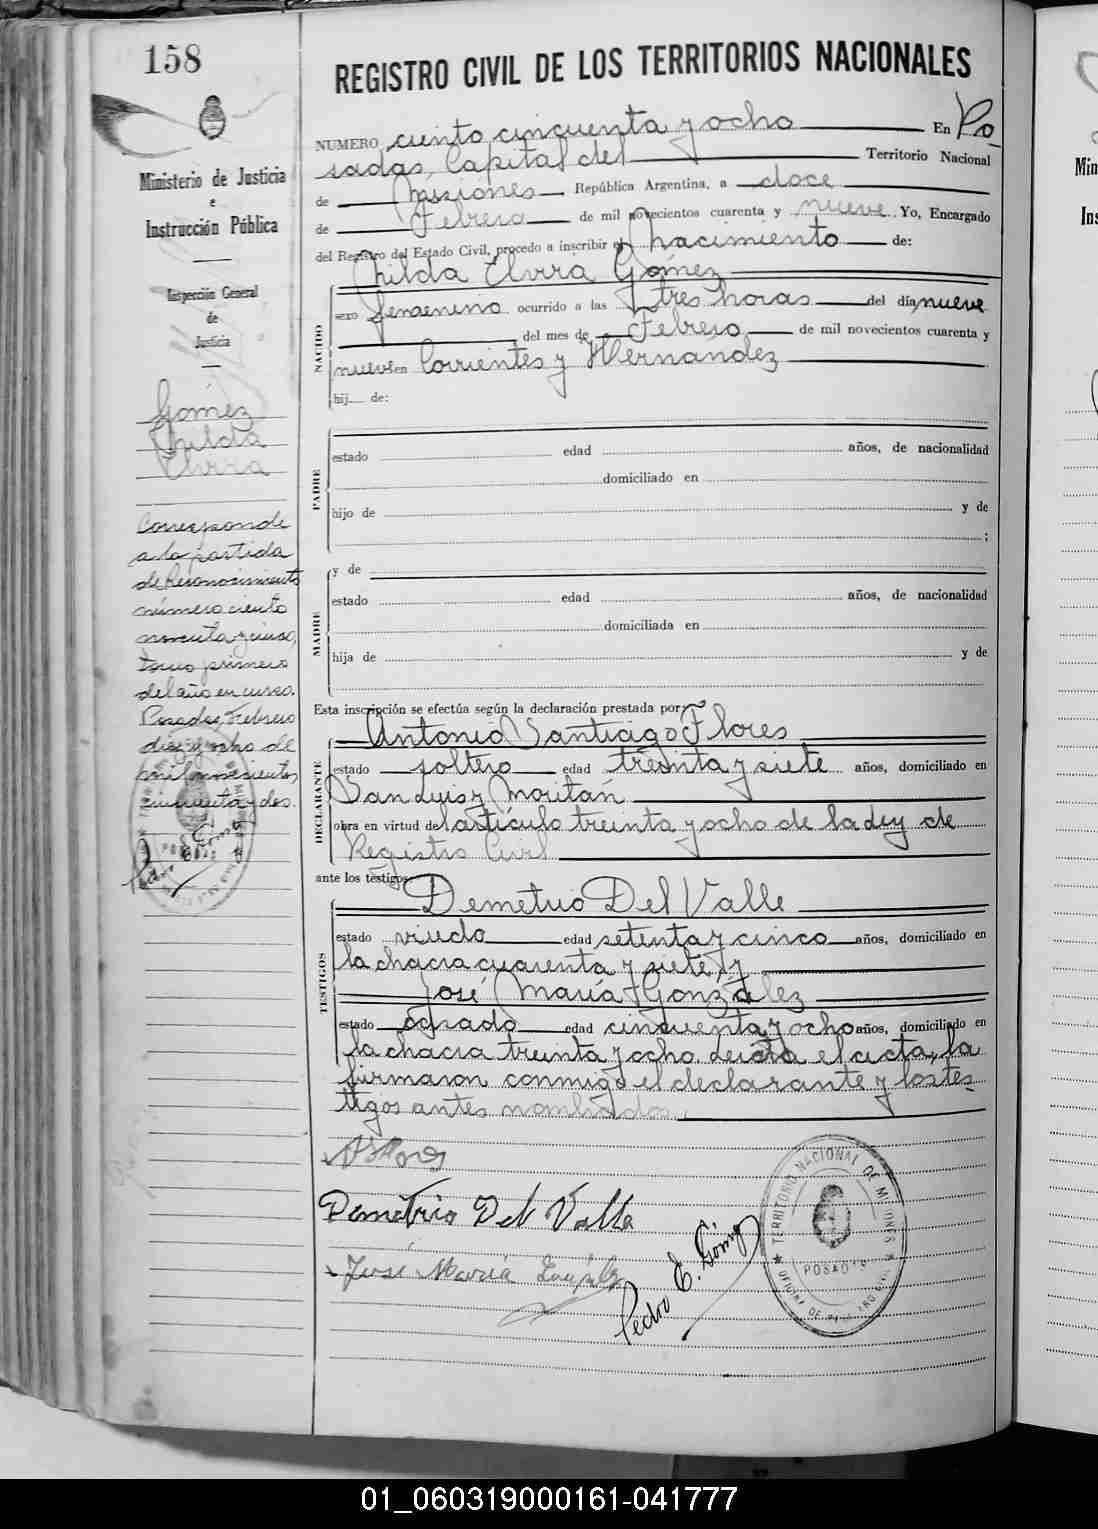 158
REGISTRO CIVIL DE LOS TERRITORIOS NACIONALES
Ministerio de Justicia
e
Instrucción Pública
Inspección General
de
Justicia
Gómez
Nilda
Elvira
Corresponde
a la partida
de Reconocimiento
número ciento
noventa y cinco,
tomo primero
del año en curso.
Posadas, Febrero
diez y ocho de
mil novecientos
cincuenta y dos.
NUMERO ciento cincuenta y ocho En Po-
sadas, Capital del Territorio Nacional
de Misiones República Argentina, a doce
de Febrero de mil novecientos cuarenta y nueve Yo, Encargado
del Registro del Estado Civil, procedo a inscribir el nacimiento de:
Nilda Elvira Gómez
NACIDO
sexo femenino ocurrido a las tres horas del día nueve
del mes de Febrero de mil novecientos cuarenta y
nueve en Corrientes y Hernández
hij de:
PADRE
estado edad años, de nacionalidad
domiciliado en
hijo de y de
;
MADRE
y de
estado edad años, de nacionalidad
domiciliada en
hija de y de
Esta inscripción se efectúa según la declaración prestada por:
Antonio Santiago Flores
DECLARANTE
estado soltero edad treinta y siete años, domiciliado en
San Luis y Moritán
obra en virtud del artículo treinta y ocho de la ley de
Registro Civil
ante los testigos
Demetrio Del Valle
TESTIGOS
estado viudo edad setenta y cinco años, domiciliado en
la chacra cuarenta y siete, y
José María González
estado casado edad cincuenta y ocho años, domiciliado en
la chacra treinta y ocho. Leída el acta, la
firmaron conmigo el declarante y los tes-
tigos antes nombrados.
Demetrio Del Valle
José María González
Pedro E. Gómez
TERRITORIO NACIONAL DE MISIONES
POSADAS
01_060319000161-041777